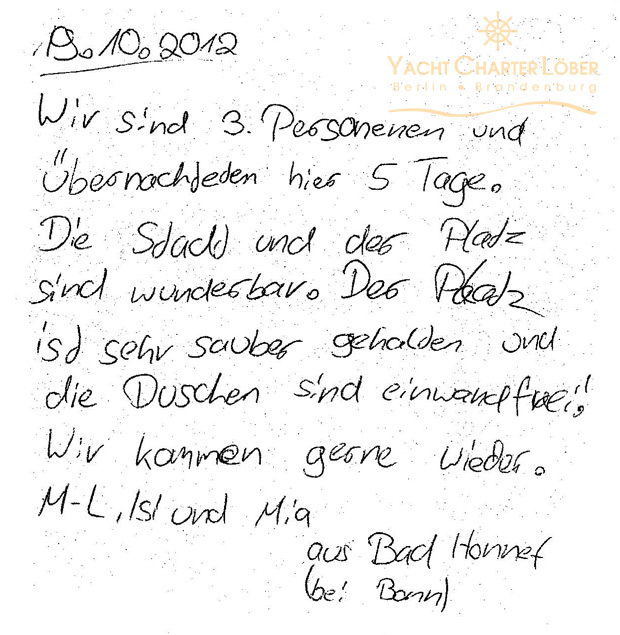 19.10.2012
YACHT CHARTER LÖBER
Berlin & Brandenburg
Wir sind 3. Personenen und
Übernachteden hier 5 Tage.
Die Stadt und der Platz
sind wunderbar. Der Platz
ist sehr sauber gehalten und
die Duschen sind einwandfrei!
Wir kammen gerne wieder.
M-L, Isi und Mia
aus Bad Honnef
(bei Bonn)